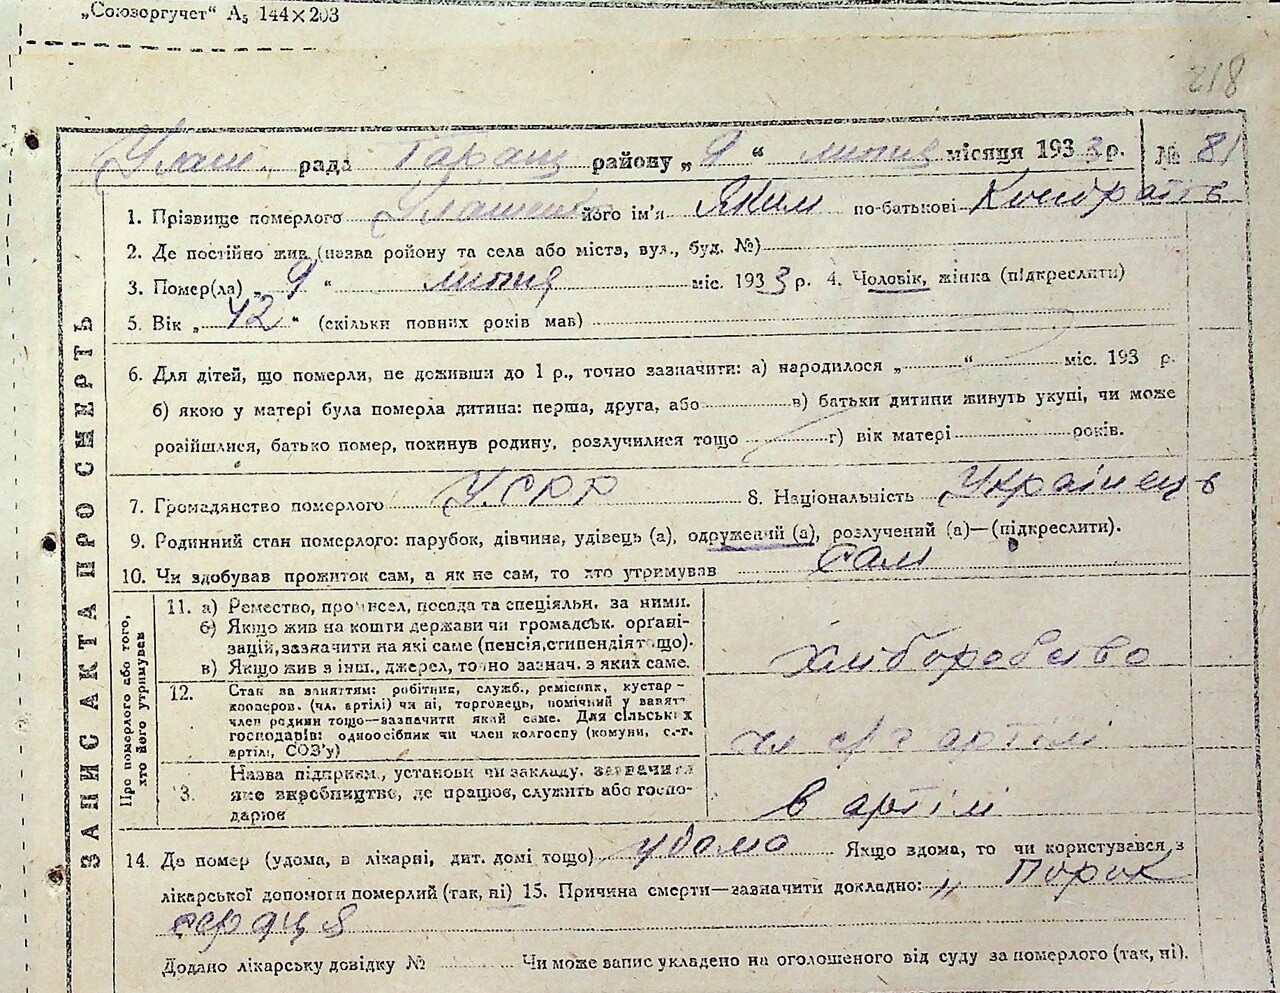 „Союзоргучет“ А₅ 144×203
218
Улаш. рада Таращ району „9“ липня місяця 1933 р. № 81
1. Прізвище померлого Улашенко його ім'я Яким по-батькові Кондратів
2. Де постійно жив (назва району та села або міств, вул., буд. №)
3. Помер(ла) „9“ липня міс. 1933 р. 4. Чоловік, жінка (підкреслити)
5. Вік „42“ (скільки повних років мав)
6. Для дітей, що померли, не доживши до 1 р., точно зазначити: а) народилося „ “ міс. 193 р.
б) якою у матері була померла дитина: перша, друга, або в) батьки дитини живуть укупі, чи може
розійшлися, батько помер, покинув родину, розлучилися тощо г) вік матері років.
7. Громадянство померлого УСРР 8. Національність Українець
9. Родинний стан померлого: парубок, дівчина, удівець (а), одружений (а), розлучений (а)—(підкреслити).
10. Чи здобував прожиток сам, а як не сам, то хто утримував сам
ЗАПИС АКТА ПРО СМЕРТЬ
Про померлого або того,
хто його утримував
11. а) Ремество, промисел, посада та спеціяльн. за ними.
б) Якщо жив на кошти держави чи громадськ. орґані-
зацій, зазначити на які саме (пенсія, стипендія тощо).
в) Якщо жив з інш. джерел, точно зазнач. з яких саме.
хліборобство
12. Стан за заняттям: робітник, служб., ремісник, кустар-
кооперов. (чл. артілі) чи ні, торговець, помічний у занят.
член родини тощо—зазначити який саме. Для сільських
господарів: одноосібник чи член колгоспу (комуни, с.-г.
артілі, СОЗ'у)
чл с/г артілі
13. Назва підприєм., установи чи закладу, зазначити
яке виробництво, де працює, служить або госпо-
дарює
в артілі
14. Де помер (удома, в лікарні, дит. домі тощо) удома Якщо вдома, то чи користувався з
лікарської допомоги померлий (так, ні) 15. Причина смерти—зазначити докладно: „ Порок
сердця
Додано лікарську довідку № Чи може запис укладено на оголошеного від суду за померлого (так, ні).